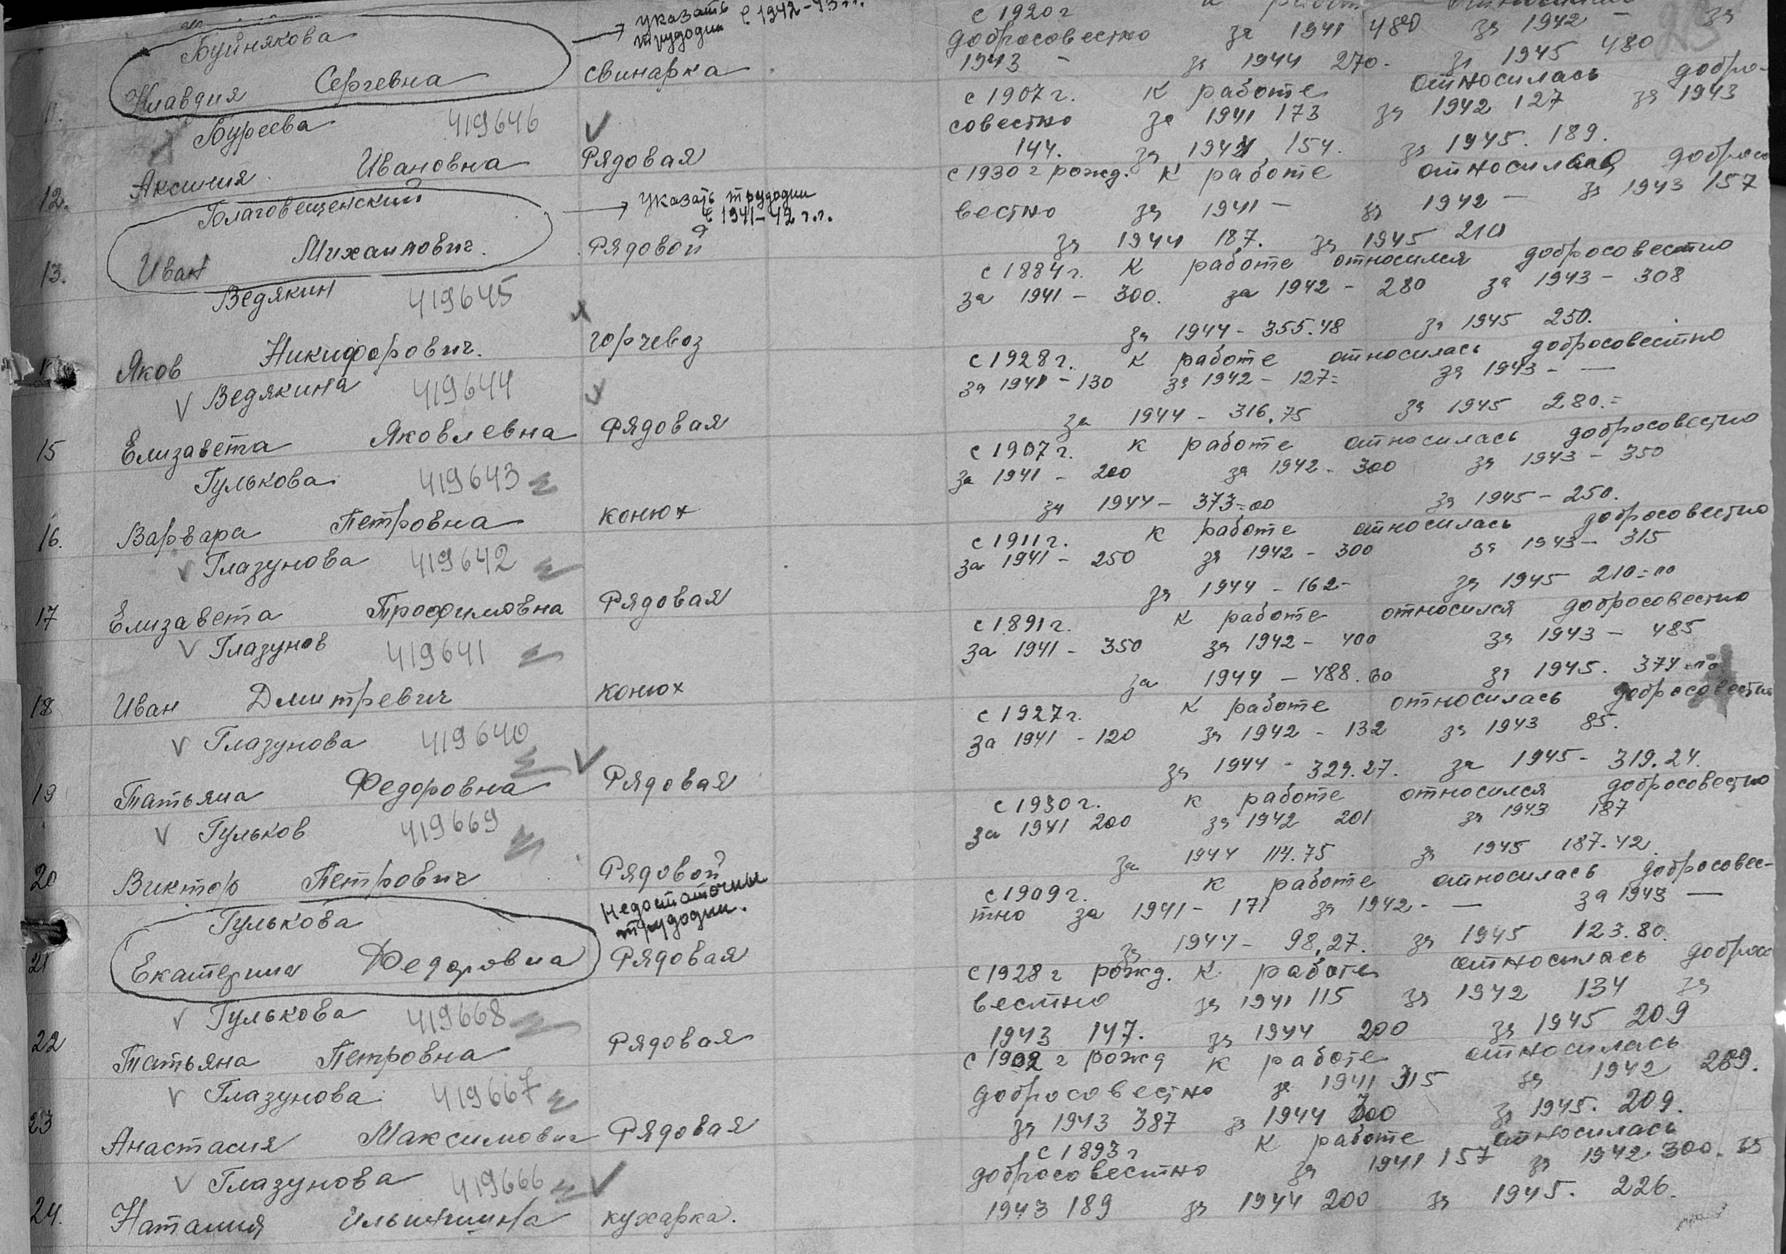 Буйнякова → указать трудодни с 1942-43 г.г.
11. Клавдия Сергевна свинарка
с 1920 г к работе относилась
добросовестно за 1941 480 за 1942 - за
1943 - за 1944 270. за 1945 480
Буреева 419646
12. Аксиния Ивановна Рядовая
с 1907 г. к работе относилась добро-
совестно за 1941 173 за 1942 127 за 1943
144. за 1944 154. за 1945. 189.
Благовещенский → указать трудодни с 1941-42 г.г.
13. Иван Михаилович. Рядовой
с 1930 г рожд. к работе относился добросо
вестно за 1941 - за 1942 - за 1943 157
за 1944 187. за 1945 210
Ведякин 419645
Яков Никифорович. горчевоз
с 1884 г. к работе относился добросовестно
за 1941 - 300. за 1942 - 280 за 1943 - 308
за 1944 - 355.48 за 1945 250.
Ведякина 419644
15 Елизавета Яковлевна Рядовая
с 1928 г. к работе относилась добросовестно
за 1941 - 130 за 1942 - 127= за 1943 - —
за 1944 - 316,75 за 1945 280.=
Гулькова 419643
16. Варвара Петровна конюх
с 1907 г. к работе относилась добросовестно
за 1941 - 200 за 1942 - 300 за 1943 - 350
за 1944 - 373=00 за 1945 - 250.
Глазунова 419642
17 Елизавета Трофимовна Рядовая
с 1911 г. к работе относилась добросовестно
за 1941 - 250 за 1942 - 300 за 1943 - 315
за 1944 - 162- за 1945 210=00
Глазунов 419641
18 Иван Дмитревич конюх
с 1891 г. к работе относился добросовестно
за 1941 - 350 за 1942 - 400 за 1943 - 485
за 1944 - 488.00 за 1945. 374=00
Глазунова 419640
19 Татьяна Федоровна Рядовая
с 1927 г. к работе относилась добросовестно
за 1941 - 120 за 1942 - 132 за 1943 85.
за 1944 - 329.27. за 1945 - 319.24.
Гульков 419669
20 Виктор Петрович Рядовой
с 1930 г. к работе относился добросовестно
за 1941 200 за 1942 201 за 1943 187
за 1944 114.75 за 1945 187.42.
Гулькова Недостаточны трудодни.
21 Екатерина Федоровна Рядовая
с 1909 г. к работе относилась добросовес-
тно за 1941 - 171 за 1942 - — за 1943 —
за 1944 - 98,27. за 1945 123.80.
Гулькова 419668
22 Татьяна Петровна Рядовая
с 1928 г рожд. к работе относилась добросо
вестно за 1941 115 за 1942 134 за
1943 147. за 1944 200 за 1945 209
Глазунова 419667
23 Анастасия Максимовн Рядовая
с 1902 г рожд к работе относилась
добросовестно за 1941 315 за 1942 289.
за 1943 387 за 1944 300 за 1945. 209.
Глазунова 419666
24. Наталия Ильинишна кухарка.
с 1893 г к работе относилась
добросовестно за 1941 157 за 1942 300. за
1943 189 за 1944 200 за 1945. 226.